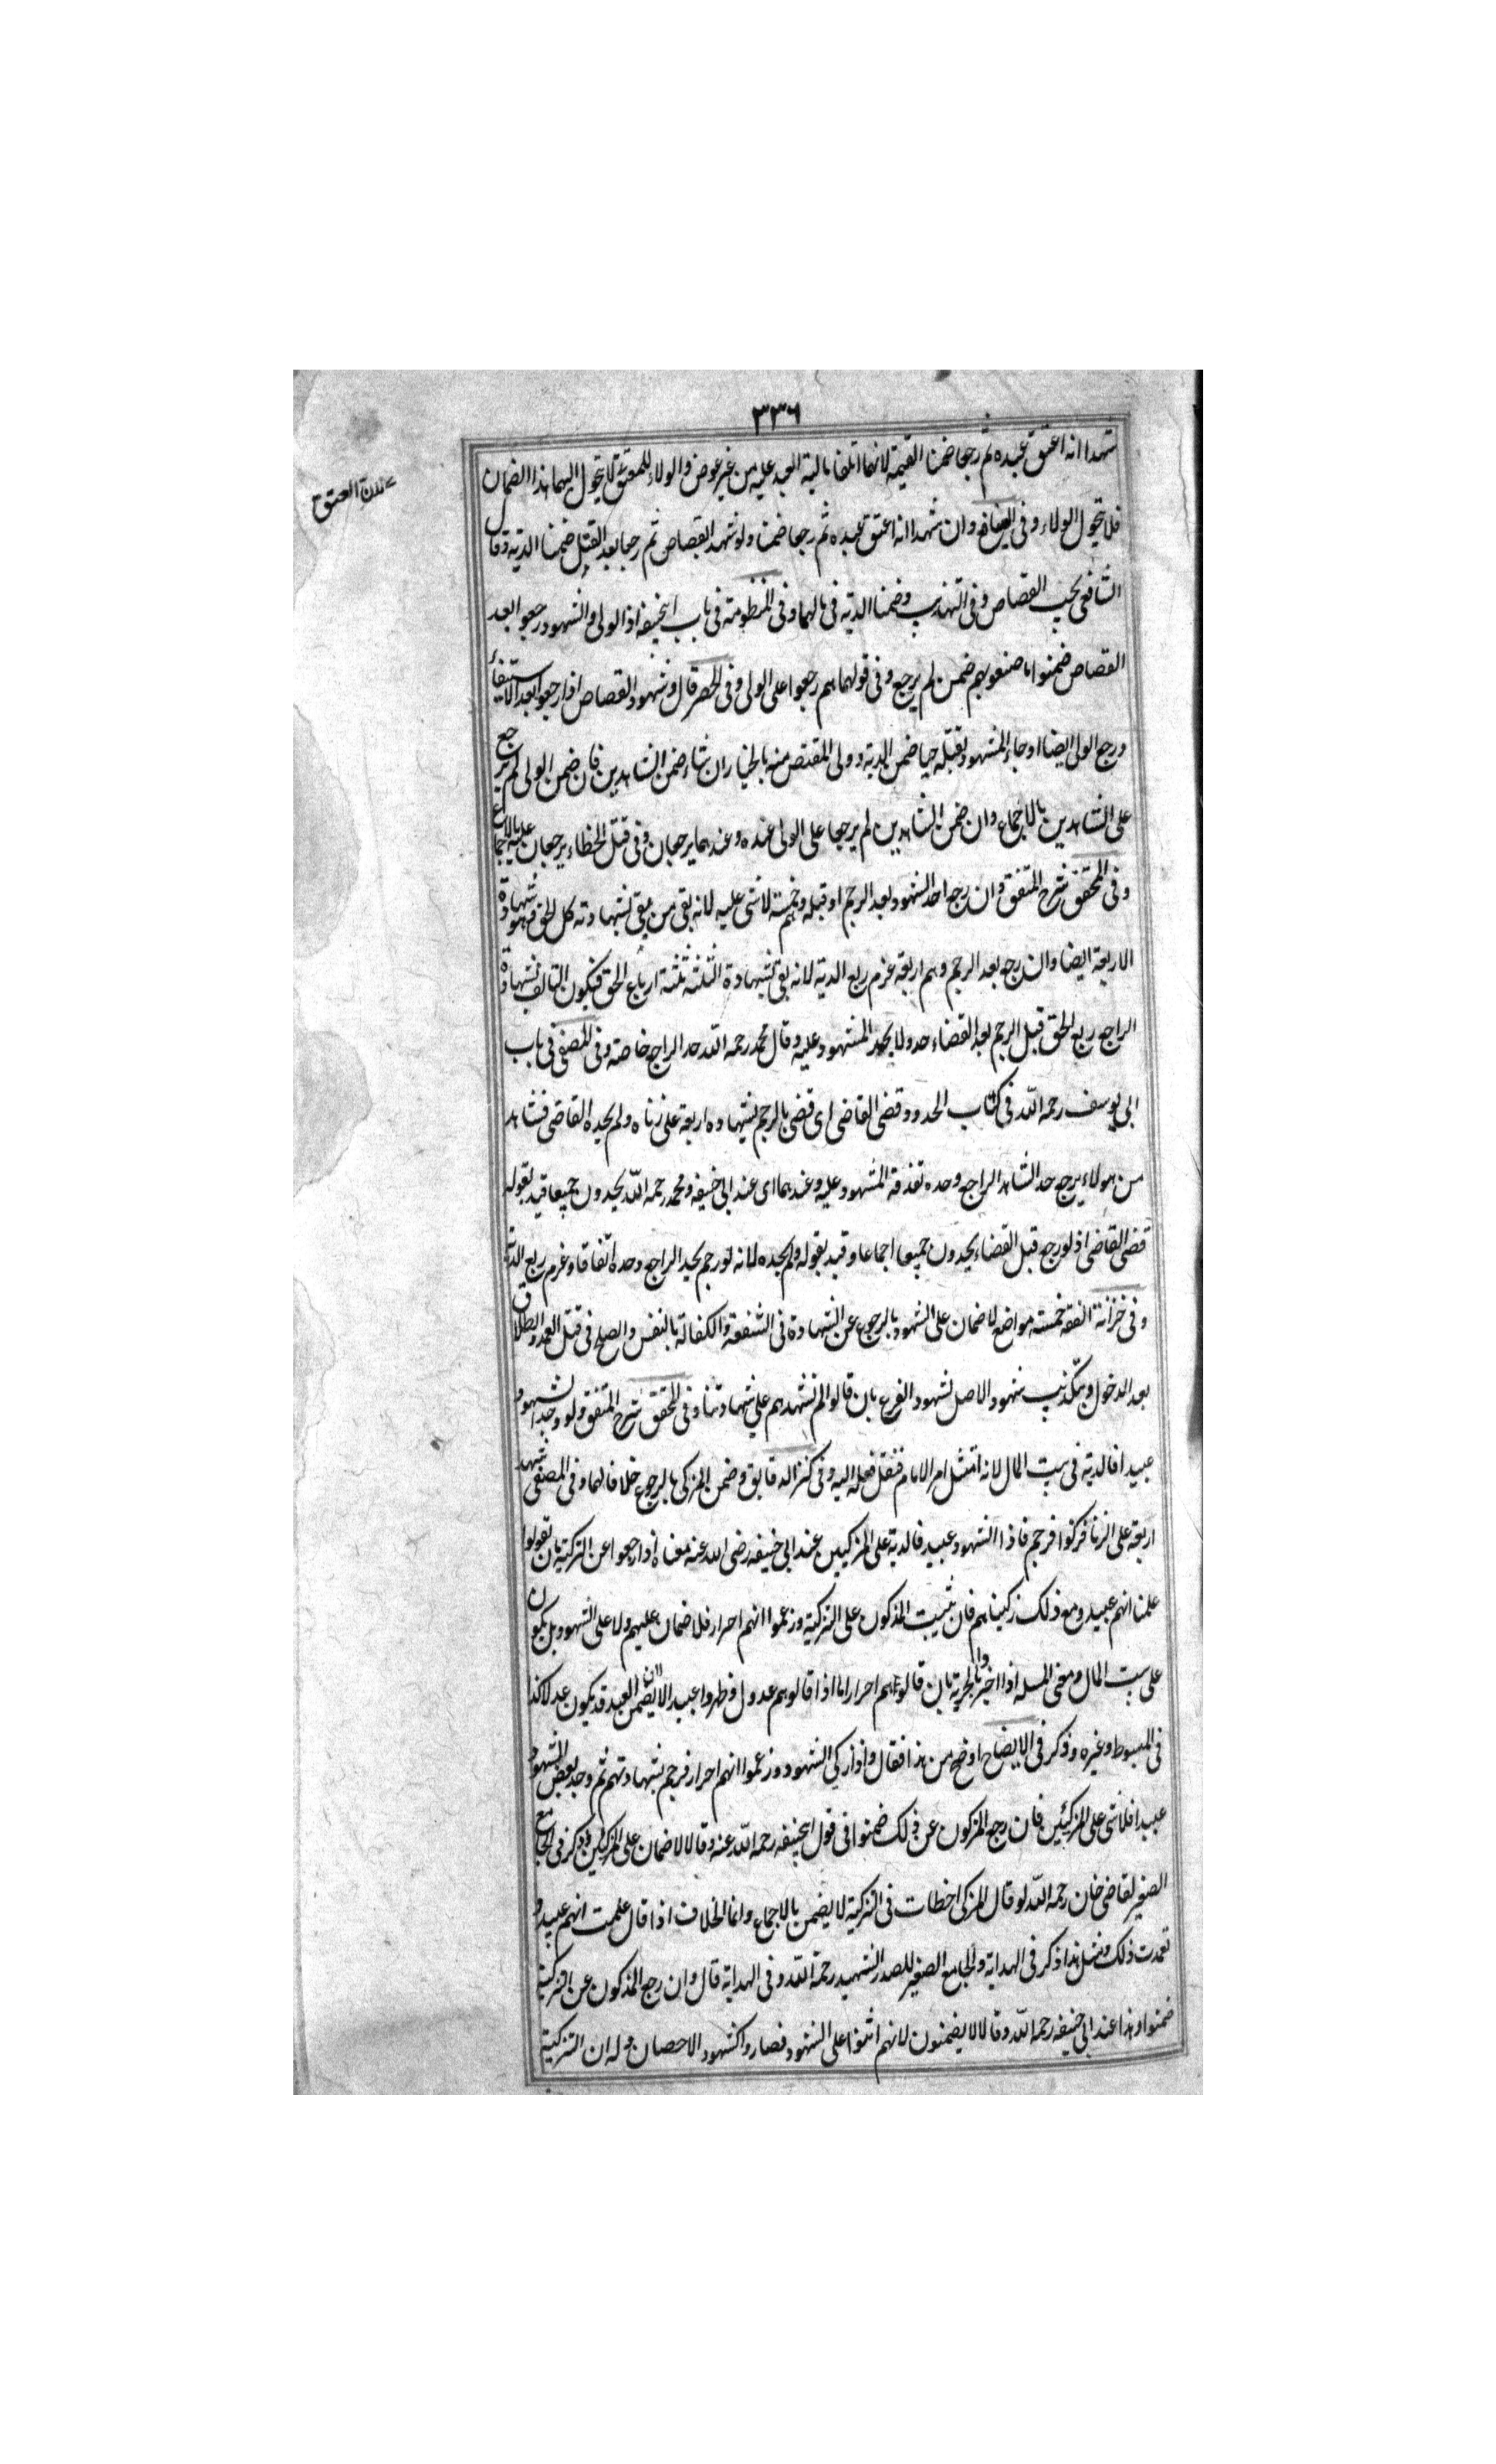 ٣٣٦
شهدا انه اعتق عبده ثم رجعا ضمنا القيمة لانهما اتلفا مالية العبد عليه من غير عوض والولاء للمعتق لا يتحول اليهما بهذا الضمان
فلا يتحول الولاء وفى وان شهدا انه اعتق عبده ثم رجعا ضمنا ولو شهدا لقصاص ثم رجعا بعد القتل ضمنا الدية وقال
الشافعى يجب القصاص وفى التهذيب وضمنا الدية فى مالهما وفى المنظومة فى باب ابيحنيفه اذا الولى والشهود رجعوا بعد
القصاص ضمنوا ما صنعوا بهم ضمن لم يرجع وفى قولهما هم رجعوا على الولى وفى الحصر قال وشهود القصاص اذا رجعوا بعد الاستيفاء
ورجع الولى ايضا او جاء المشهود بقتله حيا ضمن الدية وولى المقتص منه بالخيار ان شاء ضمن الشاهدين فان ضمن الولى لم يرجع
على الشاهدين بالاجماع وان ضمن الشاهدين لم يرجعا على الولى عنده وعندهما يرجعان وفى قتل الخطاء يرجعان عليه بالاجماع
وفى المحقق شرح المتفق وان رجع احد الشهود بعد الرجم او قبله وهم خمسة لا شى عليه لانه بقى من يبقى بشهادته كل الحق وهو شهادة
الاربعة ايضا وان رجع بعد الرجم وهم اربعة غرم ربع الدية لانه بقى بشهادة الثلثة ثلثة ارباع الحق فيكون التالف بشهادة
الراجع ربع الحق قبل الرجم بعد القضاء حد ولا يحد المشهود عليه وقال محمد رحمه الله حد الراجع خاصة وفى المصفى فى باب
ابى يوسف رحمه الله فى كتاب الحدود وقضى القاضى اى قضى بالرجم بشهادة اربعة على زناه ولم يحده القاضى فشاهد
من هولاء يرجع حد الشاهد الراجع وحده تقذفه المشهود عليه وعندهما اى عند ابى حنيفه ومحمد رحمه الله يحدون جميعا قيد بقوله
قضى القاضى اذ لو رجع قبل القضاء يحدون جميعا اجماعا وقيد بقوله ولم يحده لانه لو رجم يحد الراجع وحده اتفاقا وغرم ربع الدية
وفى خزانة الفقه خمسة مواضع لا ضمان على الشهود بالرجوع عن الشهادة فى الشفعة والكفالة بالنفس والصلح فى قتل العمد والطلاق
بعد الدخول وبتكذيب شهود الاصل لشهود الفرع بان قالوا لم نشهدهم على شهادتنا وفى المحقق شرح المتفق ولو وجد الشهود
عبيدا فالدية فى بيت المال لانه امتثل امر الامام فنقل فعله اليه وفى كنز الدقايق وضمن المزكى بالرجوع خلافا لهما وفى المصفى شهد
اربعة على الزنا فزكوا فرجم فاذا الشهود عبيد فالدية على المزكيين عند ابى حنيفه رضى الله عنه معناه اذا رجعوا عن التزكية بان يقولوا
علمنا انهم عبيد ومع ذلك زكيناهم فان ثبت المذكون على التزكية وزعموا انهم احرار فلا ضمان عليهم ولا على الشهود بل يكون
على بيت المال ومعنى المسله اذا اخبروا بالحرية بان قالوا هم احرار اما اذا قالوا هم عدول فظهروا عبيدا لا يضمن لان العبد قد يكون عدلا كذا
فى المبسوط وغيره وذكر فى الايضاح اوضح من هذا فقال واذا زكى الشهود وزعموا انهم احرار فرجم بشهادتهم ثم وجد بعض الشهود
عبيدا فلا شى على المزكيين فان رجع المزكون عن ذلك ضمنوا فى قول ابيحنيفه رحمه الله عنه وقالا لا ضمان على المزكيين وذكر فى الجامع
الصغير لقاضى خان رحمه الله لو قال المزكى اخطات فى التزكية لا يضمن بالاجماع وانما الخلاف اذا قال علمت انهم عبيد و
تعمدت ذلك ومثل هذا ذكر فى الهداية والجامع الصغير للصدر الشهيد رحمة الله وفى الهداية قال وان رجع المذكون عن التزكية
ضمنوا وهذا عند ابى حنيفه رحمه الله وقالا لا يضمنون لانهم اثنوا على الشهود فصاروا كشهود الاحصان وله ان التزكية